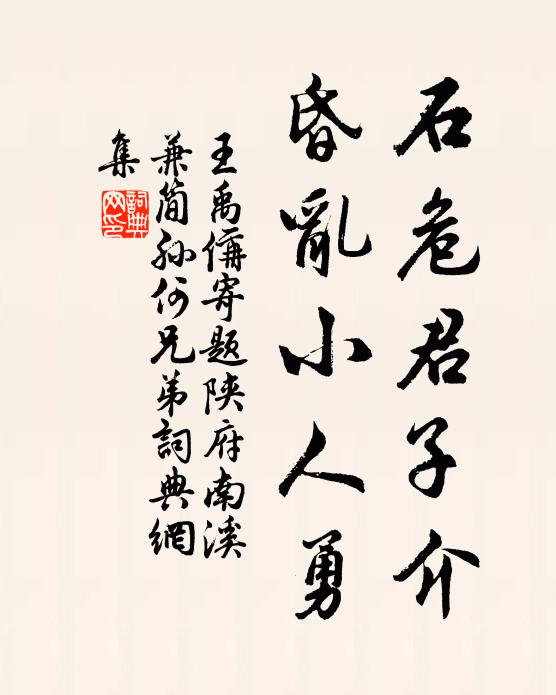 石危君子介
昏亂小人勇
王禹偁寄題陝府南溪
兼簡孙何兄弟詞典網
集
詞典網印